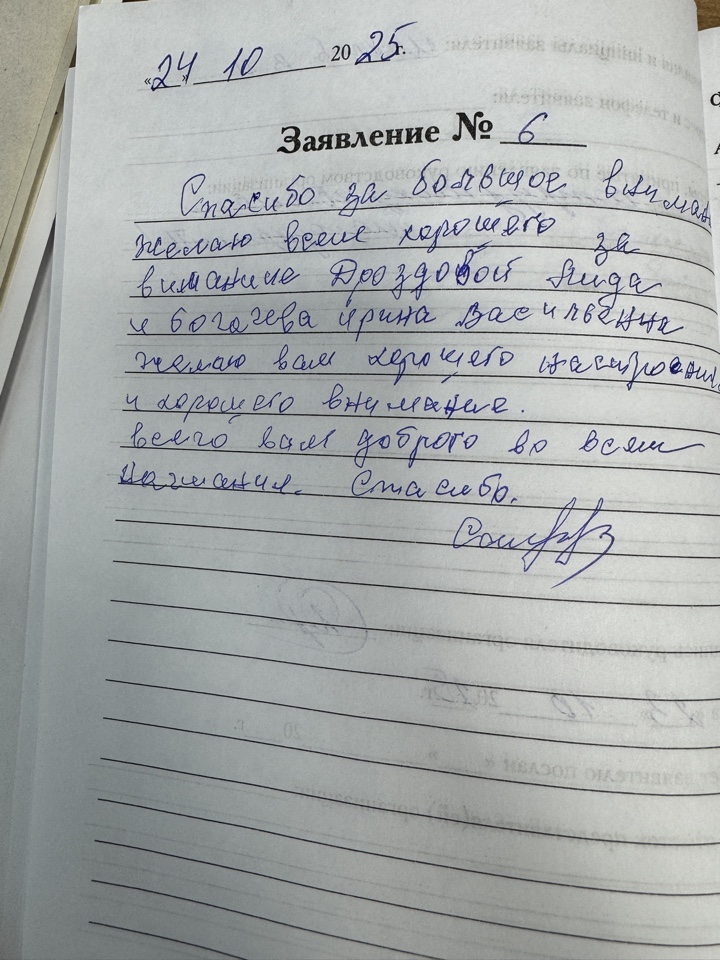 «24» 10 2025г.
Заявление № 6
Спасибо за большое вниман
желаю всем хорошего за
вимание Дроздовой Лида
и Богачева Ирина Васильевна
желаю вам хорошего настроени
и хорошего внимание.
всего вам доброго во всем
Спасибо.